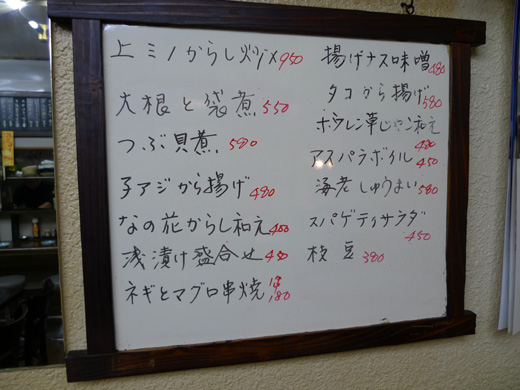 上ミノからし炒〆950
大根と袋煮 550
つぶ貝煮 580
子アジから揚げ 480
なの花からし和え 400
浅漬け盛合せ 450
ネギとマグロ串焼 1本180
揚げナス味噌 480
タコから揚げ 580
ホウレン草じゃこ和え
480
アスパラボイル 450
海老しゅうまい 580
スパゲティサラダ
450
枝豆 380